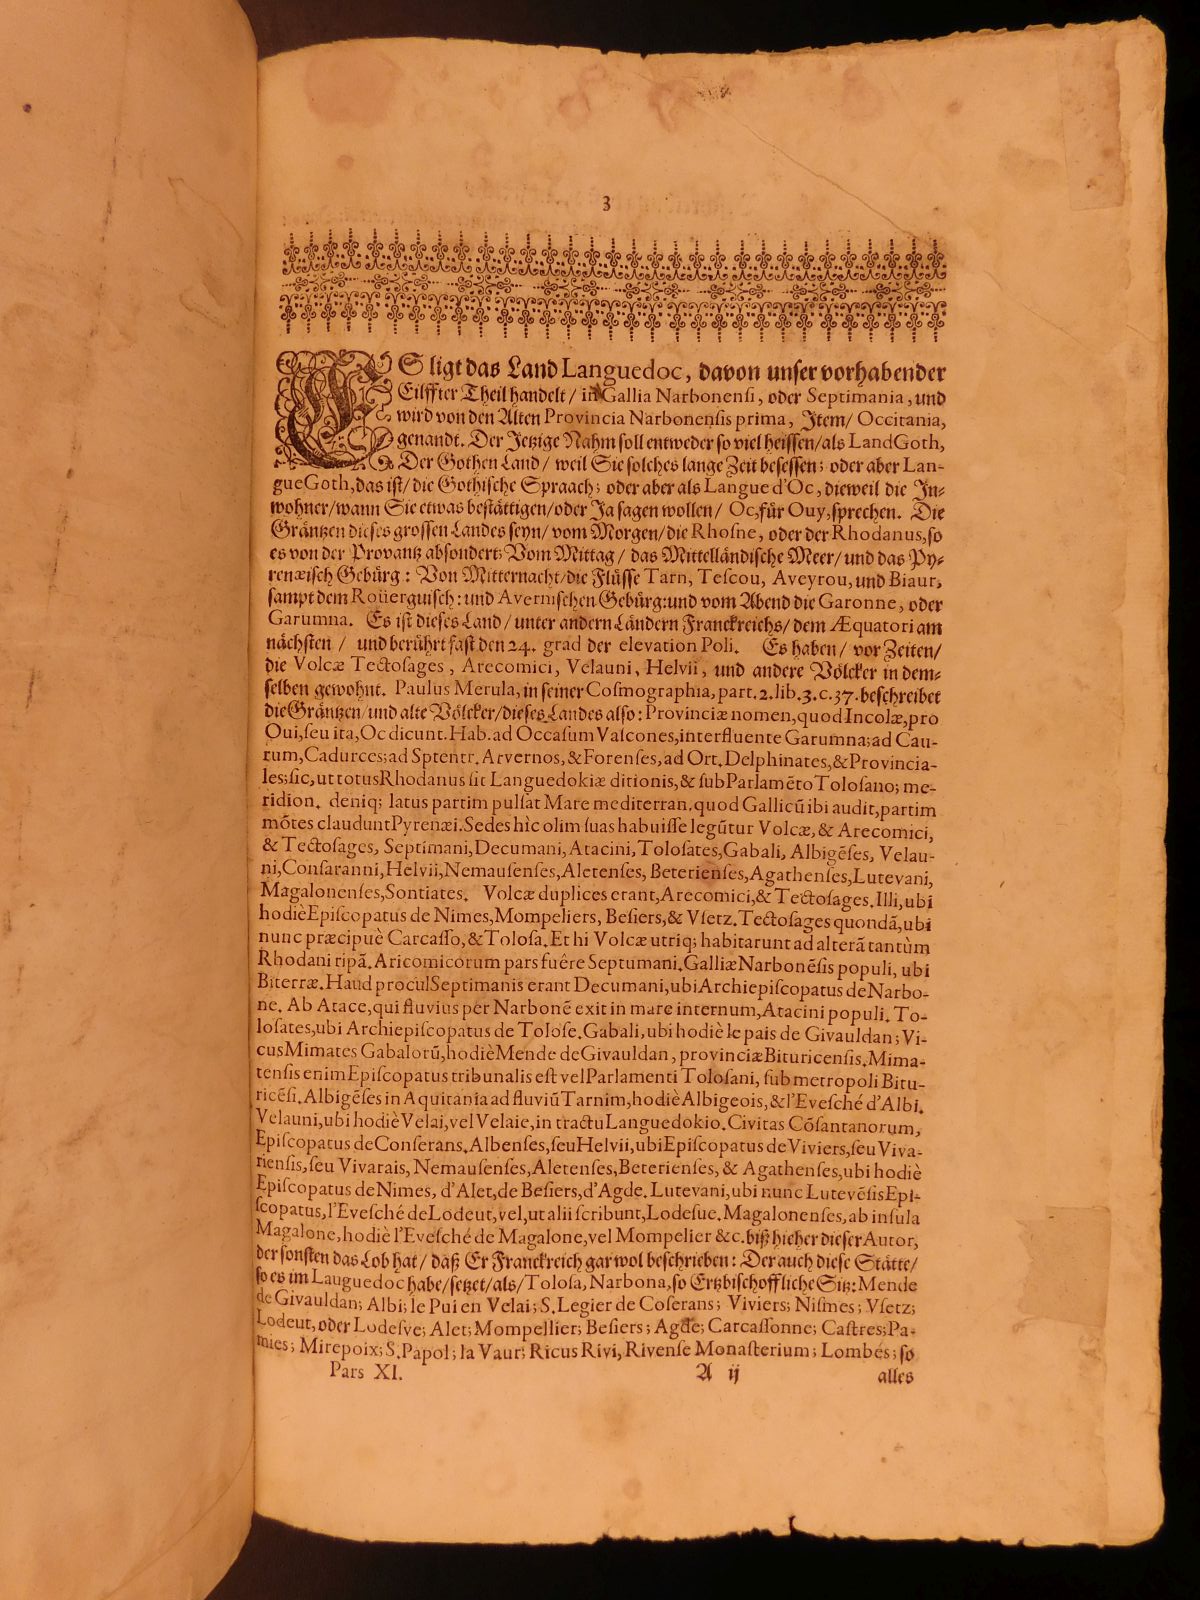 3
ES ligt das Land Languedoc, davon unser vorhabender
Eilffter Theil handelt / in Gallia Narbonensi, oder Septimania, und
wird von den Alten Provincia Narbonensis prima, Item / Occitania,
genandt. Der Jetzige Nahm soll entweder so viel heissen / als LandGoth,
Der Gothen Land / weil Sie solches lange Zeit besessen; oder aber Lan-
gueGoth, das ist / die Gothische Spraach; oder aber als Langue d'Oc, dieweil die In-
wohner / wann Sie etwas bestättigen / oder Ja sagen wollen / Oc, für Ouy, sprechen. Die
Gräntzen dieses grossen Landes seyn / vom Morgen / die Rhosne, oder der Rhodanus, so
es von der Provantz absondert: Vom Mittag / das Mittelländische Meer / und das Py-
renæisch Gebürg: Von Mitternacht / die Flüsse Tarn, Tescou, Aveyrou, und Biaur,
sampt dem Roüerguisch: und Avernischen Gebürg: und vom Abend die Garonne, oder
Garumna. Es ist dieses Land / unter andern Ländern Franckreichs / dem Æquatori am
nächsten / und berührt fast den 24. grad der elevation Poli. Es haben / vor Zeiten /
die Volcæ Tectosages, Arecomici, Velauni, Helvii, und andere Völcker in dem-
selben gewohnt. Paulus Merula, in seiner Cosmographia, part. 2. lib. 3. c. 37. beschreibet
die Gräntzen / und alte Völcker / dieses Landes also: Provinciæ nomen, quod Incolæ, pro
Oui, seu ita, Oc dicunt. Hab. ad Occasum Vascones, interfluente Garumna; ad Cau-
rum, Cadurces; ad Sptentr. Arvernos, & Forenses, ad Ort. Delphinates, & Provincia-
les; sic, ut totus Rhodanus sit Languedokiæ ditionis, & sub Parlamẽto Tolosano; me-
ridion. deniq; latus partim pulsat Mare mediterran. quod Gallicũ ibi audit, partim
mõtes claudunt Pyrenæi. Sedes hìc olim suas habuisse legũtur Volcæ, & Arecomici,
& Tectosages, Septimani, Decumani, Atacini, Tolosates, Gabali, Albigẽses, Velau-
ni, Consaranni, Helvii, Nemausenses, Aletenses, Beterienses, Agathenses, Lutevani,
Magalonenses, Sontiates. Volcæ duplices erant, Arecomici, & Tectosages. Illi, ubi
hodiè Episcopatus de Nimes, Mompeliers, Besiers, & Vsetz. Tectosages quondã, ubi
nunc præcipuè Carcasso, & Tolosa. Et hi Volcæ utriq; habitarunt ad alterã tantùm
Rhodani ripã. Aricomicorum pars fuêre Septumani. Galliæ Narbonẽsis populi, ubi
Biterræ. Haud procul Septimanis erant Decumani, ubi Archiepiscopatus de Narbo-
ne. Ab Atace, qui fluvius per Narbonẽ exit in mare internum, Atacini populi. To-
losates, ubi Archiepiscopatus de Tolose. Gabali, ubi hodiè le pais de Givauldan; Vi-
cus Mimates Gabalorũ, hodiè Mende de Givauldan, provinciæ Bituricensis. Mima-
tensis enim Episcopatus tribunalis est vel Parlamenti Tolosani, sub metropoli Bitu-
ricẽsi. Albigẽses in Aquitania ad fluviũ Tarnim, hodiè Albigeois, & l'Evesché d'Albi.
Velauni, ubi hodiè Velai, vel Velaie, in tractu Languedokio. Civitas Cõsantanorum,
Episcopatus de Conserans. Albenses, seu Helvii, ubi Episcopatus de Viviers, seu Viva-
riensis, seu Vivarais, Nemausenses, Aletenses, Beterienses, & Agathenses, ubi hodiè
Episcopatus de Nimes, d'Alet, de Besiers, d'Agde. Lutevani, ubi nunc Lutevẽsis Epi-
scopatus, l'Evesché de Lodeut, vel, ut alii scribunt, Lodesue. Magalonenses, ab insula
Magalone, hodiè l'Evesché de Magalone, vel Mompelier &c. biß hieher dieser Autor,
der sonsten das Lob hat / daß Er Franckreich gar wol beschrieben: Der auch diese Stätte /
so es im Lauguedoc habe / setzet / als / Tolosa, Narbona, so Ertzbischoffliche Sitz: Mende
de Givauldan; Albi; le Pui en Velai; S. Legier de Coserans; Viviers; Nismes; Vsetz;
Lodeut, oder Lodesve; Alet; Mompellier; Besiers; Agde; Carcassonne; Castres; Pa-
mies; Mirepoix; S. Papol; la Vaur; Ricus Rivi, Rivense Monasterium; Lombés; so
Pars XI. A ij alles